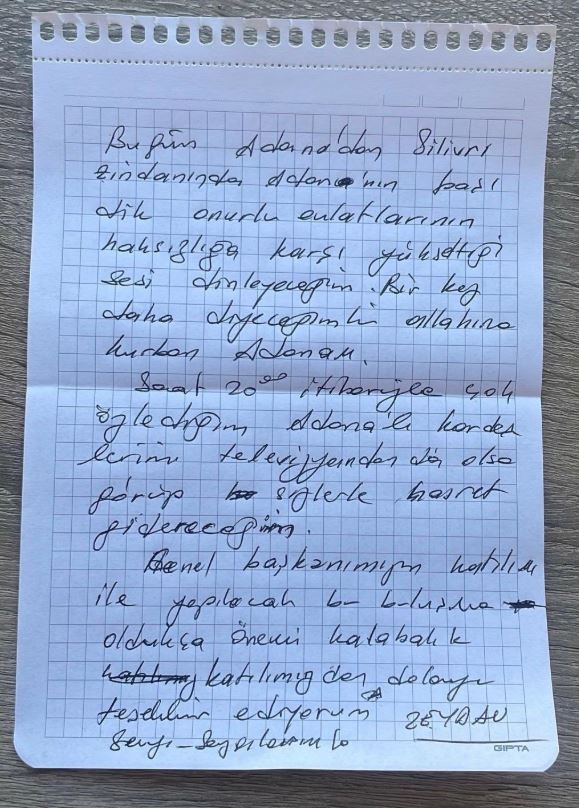 Bugün Adana'dan Silivri
zindanında Adana'nın başı
dik onurlu evlatlarının
haksızlığa karşı yükselttiği
sesi dinleyeceğim. Bir kez
daha diyeceğim ki allahına
kurban Adanam.
Saat 20⁰⁰ itibariyle çok
özlediğim Adana'lı kardeş
lerimi televizyondan da olsa
görüp sizlerle hasret
gidereceğim.
Genel başkanımızın katılımı
ile yapılacak
oldukça önemli kalabalık
katılımızdan dolayı
teşekkür ediyorum ZEYDAN
Sevgi-Saygılarımla
GIPTA